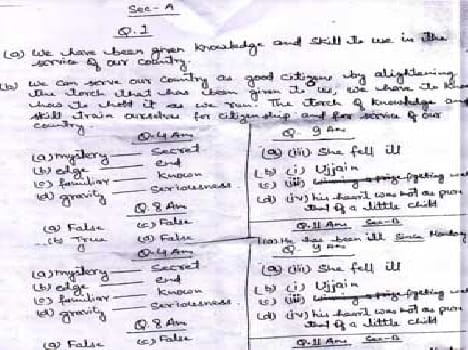 Sec-A
Q.1
(a) We have been given knowledge and skill to use in the
service of our country.
(b) We can serve our country as good citizens by alightening
the torch that has been given to us, we have to know
how to hold it as we run. The torch of knowledge an
skill train ourselves for citizenship and for service of our
country.
Q.4 Ans
(a) mystery — Secret
(b) edge — end
(c) familiar — Known
(d) gravity — Seriousness
Q.8 Ans
(a) False (c) False
(b) True (d) False
Q.9 Ans
(a) (iii) She fell ill
(b) (i) Ujjain
(c) (ii) a prize fighting
(d) (iv) his heart was not as pure
that of a little child
Q.11 Ans Sec-B
He has been ill since Monday
Q.4 Ans
(a) mystery — Secret
(b) edge — end
(c) familiar — Known
(d) gravity — Seriousness.
Q.8 Ans
(a) False (c) False
Q. 9 Ans
(a) (iii) She fell ill
(b) (i) Ujjain
(c) (ii) a prize fighting
(d) (iv) his heart was not as pure
that of a little child
Q.11 Ans Sec-B